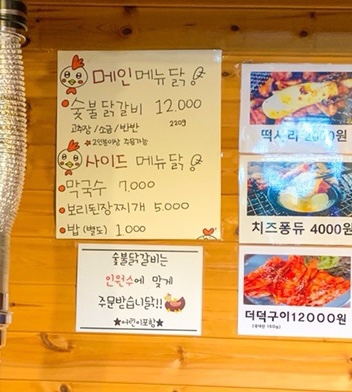 메인메뉴닭
숯불닭갈비 12.000
고추장/소금/반반 220g
★2인분이상 주문가능
사이드 메뉴닭
막국수 7.000
보리된장찌개 5.000
밥(별도) 1.000
숯불닭갈비는
인원수에 맞게
주문받습니닭!!
★어린이포함★
떡사리 2000원
치즈퐁듀 4000원
더덕구이12000원